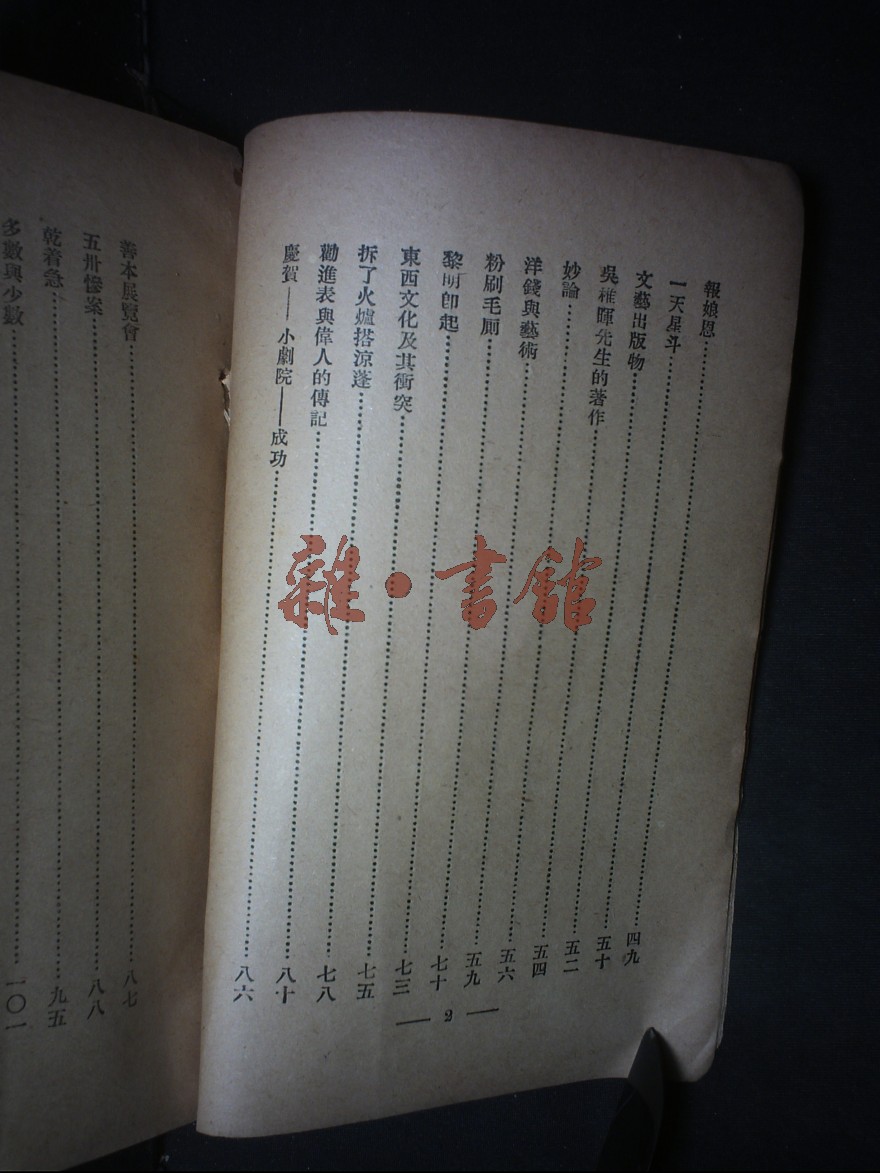 報娘恩……四九
一天星斗……五十
文藝出版物……五二
吳稚暉先生的著作……五四
妙論……五六
洋錢與藝術……五九
粉刷毛厠……七十
黎明即起……七三
東西文化及其衝突……七五
拆了火爐搭涼蓬……七八
勸進表與偉人的傳記……八十
慶賀——小劇院——成功……八六
— 2 —
善本展覽會……八七
五卅慘案……八八
乾着急……九五
多數與少數……一〇一
雜·書館